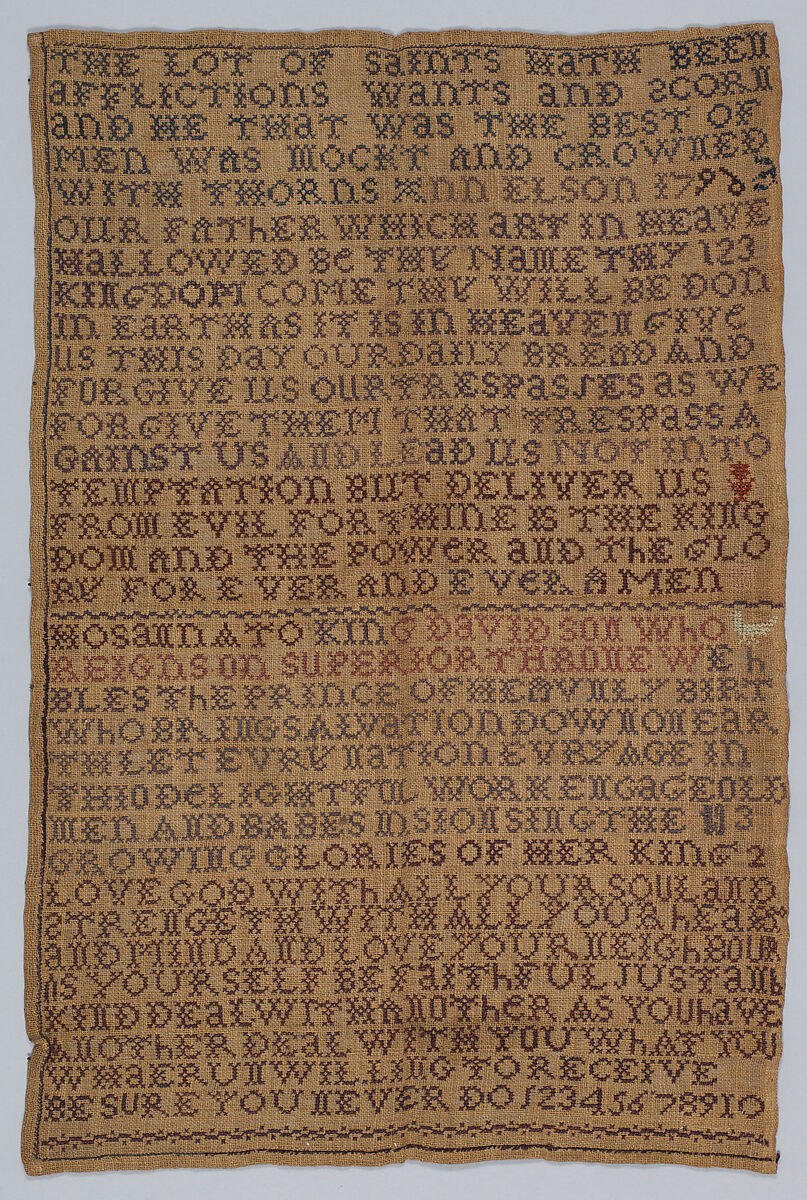 THE LOT OF SaintS HatH BEEN
aFFLICTIONS WantS anD SCORN
anD HE THat Was THE BEST OF
MEN WAS MOCKT AND CROWNED
WITH THORNS ANN ELSON 179
OUR FATHER WHICH aRT IN HEAVE
HaLLOWED Be THY NaME THY 123
KINGDOM COME THY WILL BE DON
IN EaRTH AS IT IS IN HEaVEN GIVe
US THIS DaY OUR DaILY BREAD AND
FORGIVE US OUR TRESPaSSES aS WE
FORGIVE THEM THAT TRESPaSS A
GAINST US AND LEaD US NOT INTO
TEMPTATION BUT DELIVER US
FROM EVIL FOR THINE IS THE KING
DOM AND THE POWER aND The GLO
RY FOR EVER AND EVER AMEN
HOSaNNA TO KING DaVID SON WhO
REIGNS ON SUPERIOR THRONE WE h
BLES ThE PRINCE OF HEAVNLY BIRT
WhO BRING SALVATION DOWN ON EAR
TH LET EVRY NATION EVRY AGE IN
THIO DeLIGHTFUL WORK ENGaGE OLD
MEN AND BABES IN SION SING THE 3
GROWING GLORIES OF HER KING 2
LOVE GOD WITh ALL YOUR SOUL AND
STRENGETH WITH ALL YOUR hEaR
aND MIND AND LOVE YOUR NEIGhBOUR
aS YOURSELF BE FaITHFUL JUST aND
KIND DEaL WITH ANOTHER AS YOU haVE
ANOTHER DEAL WITH YOU WhAT YOU
WHAER UNWILLING TO RECEIVE
BE SURE YOU NEVER DO 12345678910